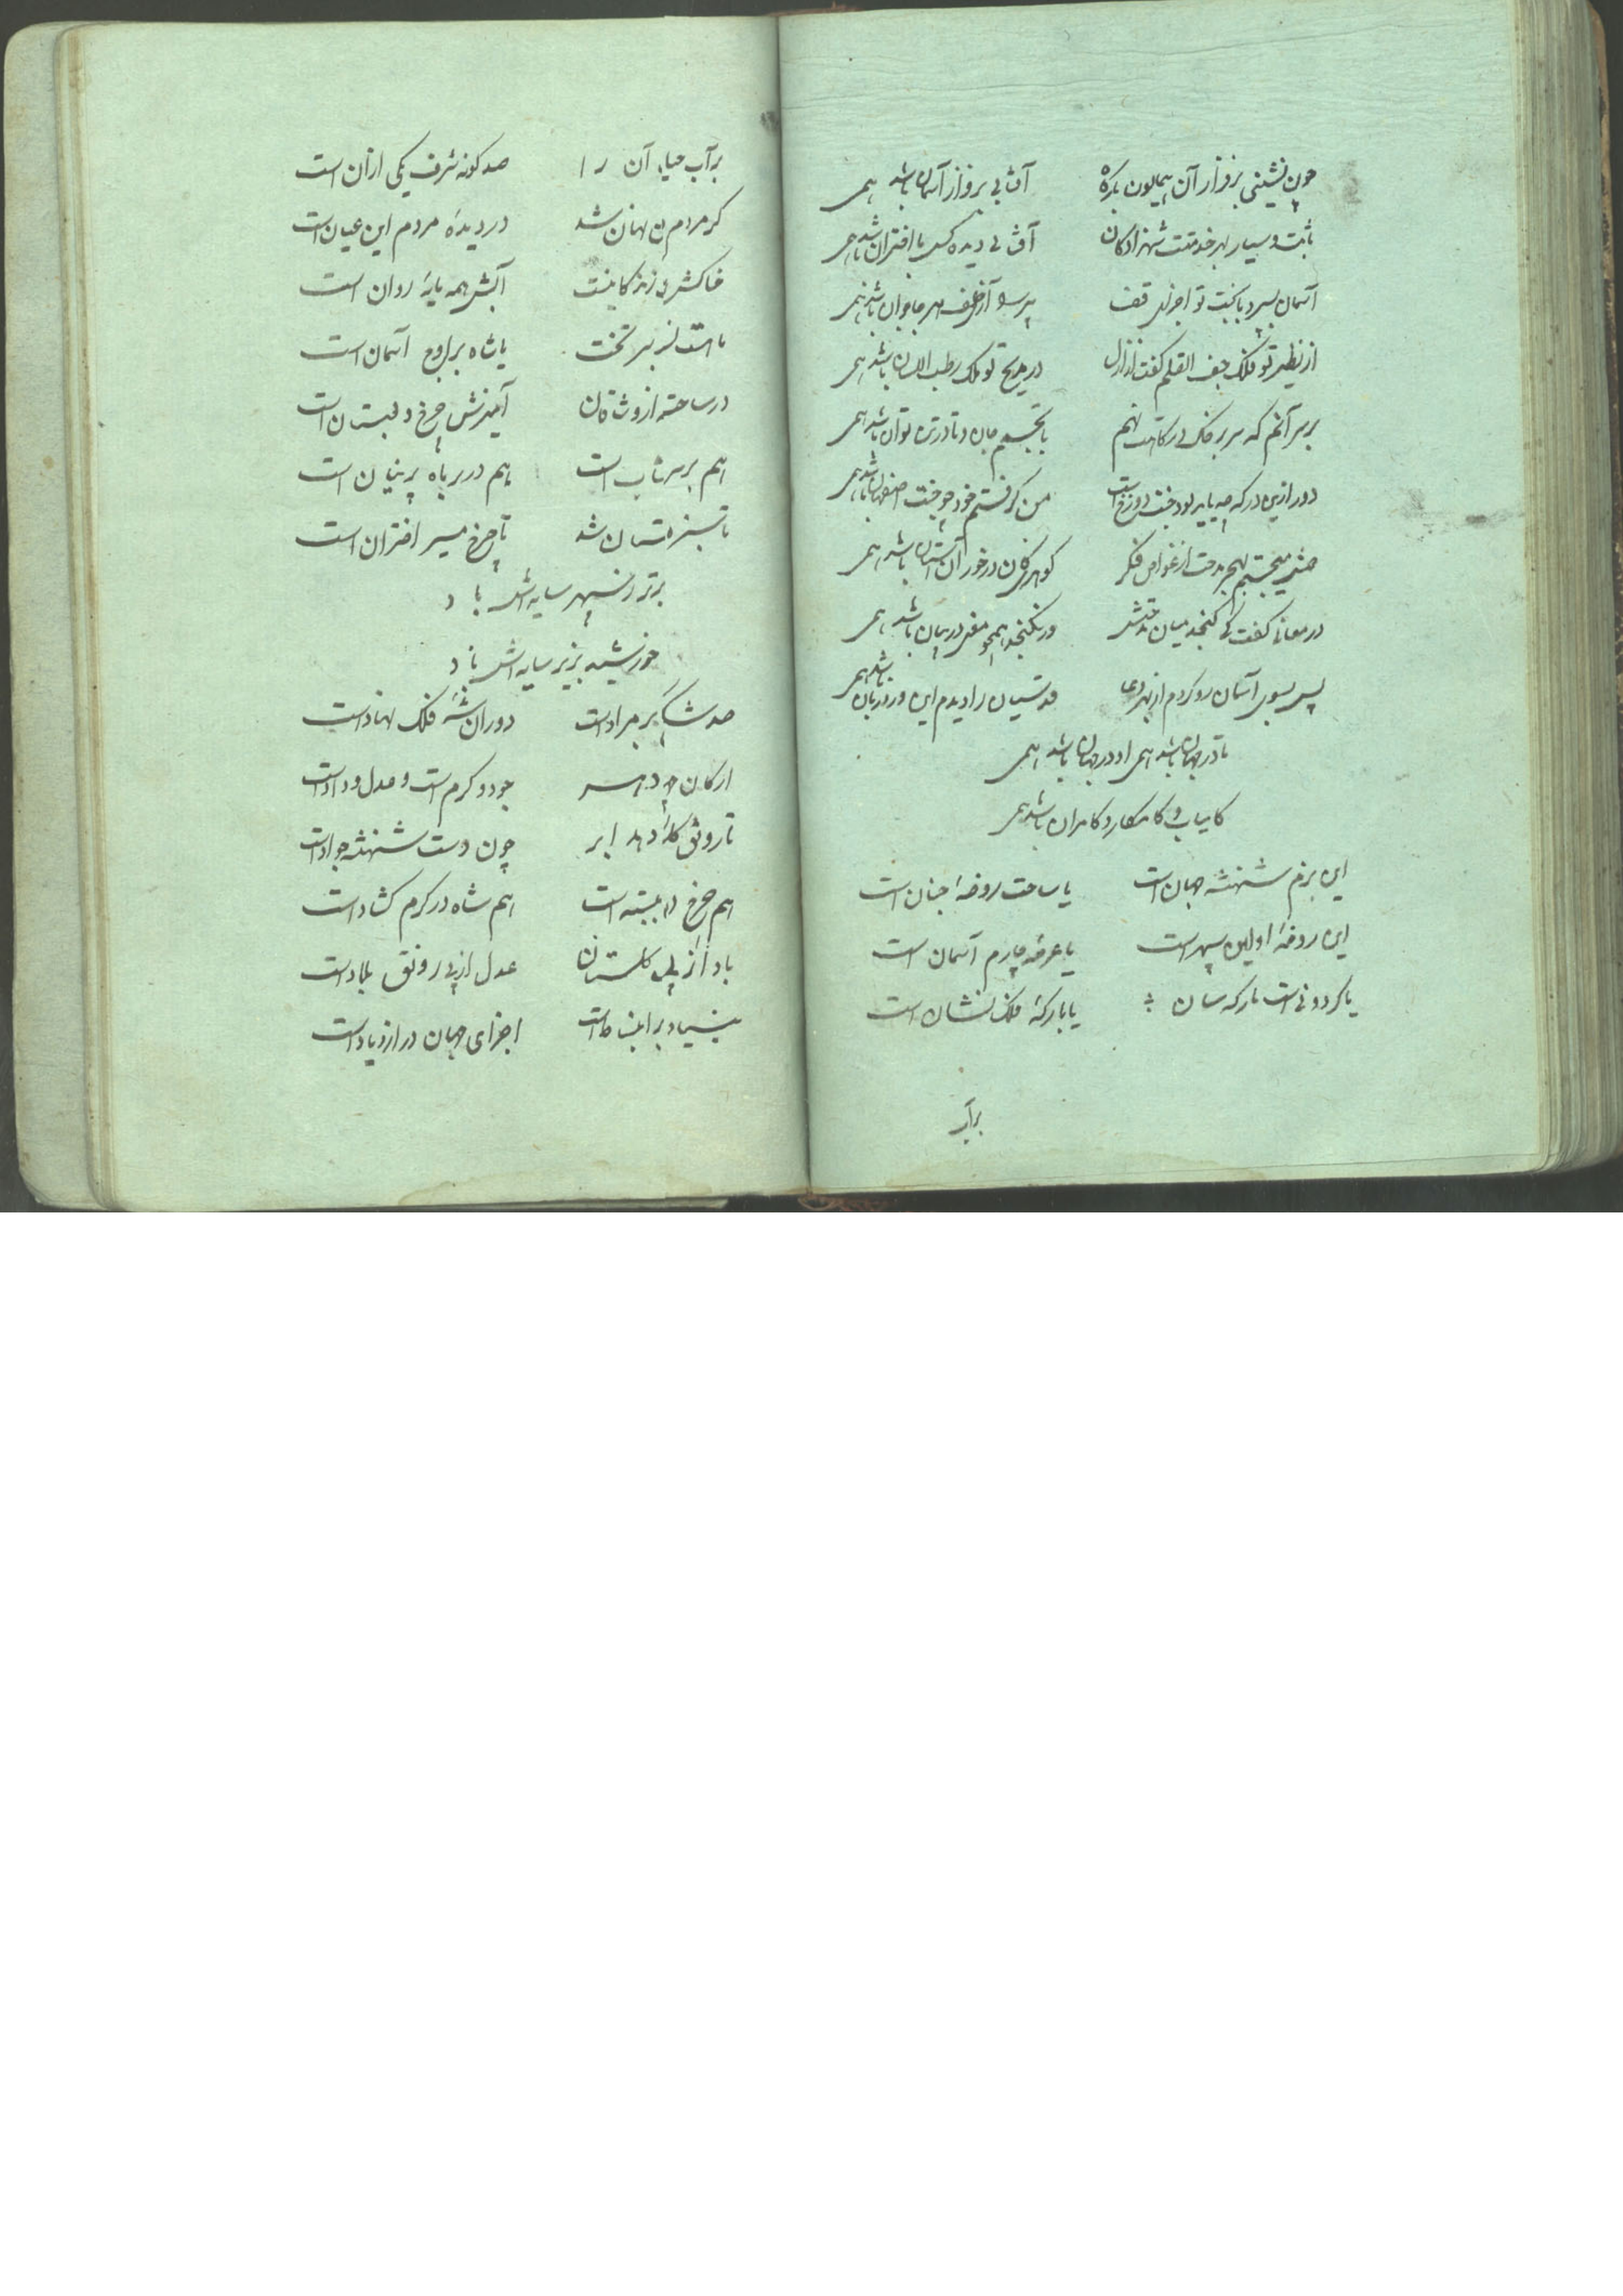 چون نشینی بر فراز آن همایون بارگاه آفتابی بر فراز آسمان باشد همی
ثابت و سیار بهر خدمتت شهزادگان آفتابی دیده کس با اختران باشد همی
آسمان سپرد با بخت تو اجزای پیر سر
از نظیر تو فلک جف القلم گفت از ازل در مدیح تو ملک رطب اللسان باشد همی
بر سر آنم که سر بر خاک درگاهت نهم تا بجسم جان و تا در تن توان باشد همی
دور ازین درگه چه باید بود جنت دوزخ است من گرفتم خود چو جنت اصفهان باشد همی
دی میجستم بهر مدحت از غواص فکر گوهری کان در خور آن آستان باشد همی
در معانی گفت کی گنجد میان مدحتش ور نگنجد همچو معنی در بیان باشد همی
پس بسوی آسمان رو کردم از بهر دعا قدسیان را دیدم این ورد زبان باشد همی
تا در جهان باشد همی او در جهان باشد همی
کامیاب و کامکار و کامران باشد همی
این بزم شهنشه جهان است یا ساحت روضهٔ جنان است
این روضهٔ اولین سپهر است یا عرصهٔ چارم آسمان است
یا گردونی است بارگه سان یا بارگهٔ فلک نشان است
برآب
برآب حیات آن را صد گونه شرف یکی از آن است
گر مردم از نهان شد در دیدهٔ مردم این عیان است
خاکش زندگانیست آبش همه مایهٔ روان است
ماه است بر تخت یا شاه بر اوج آسمان است
در ساحت از وشاقان آمیزش چرخ و بستان است
هم بر سر است هم در بر ماه پرنیان است
تا سبزه ستان شد تا چرخ مسیر اختران است
برتر ز سپهر سایه‌اش باد
خورشید بزیر سایه‌اش باد
صد شکر که بر مراد است دوران شه فلک نهاد است
ارکان جود و کرم است و عدل و داد است
تا رونق دهد ابر چون دست شهنشه جواد است
هم چرخ در بسته است هم شاه در کرم گشاد است
باد از پی گلستان عدل از پی رونق بلاد است
بنیاد بر انبساط است اجزای جهان در ازدیاد است